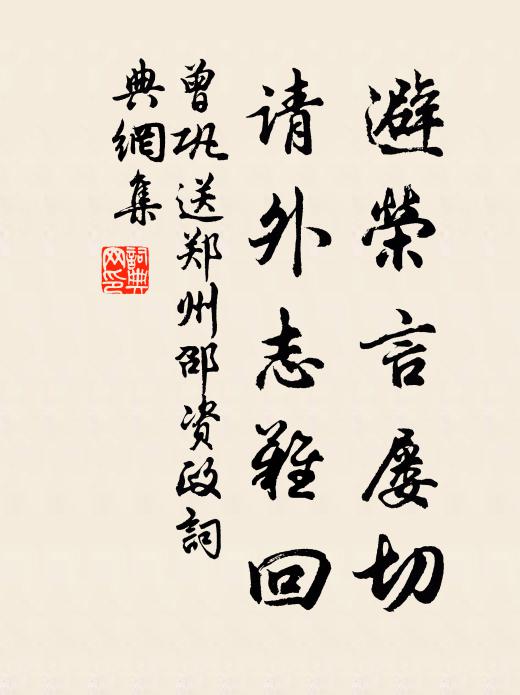 避榮言屡切
请外志難回
曾巩送郑州邵资政詞
典網集
詞典网印